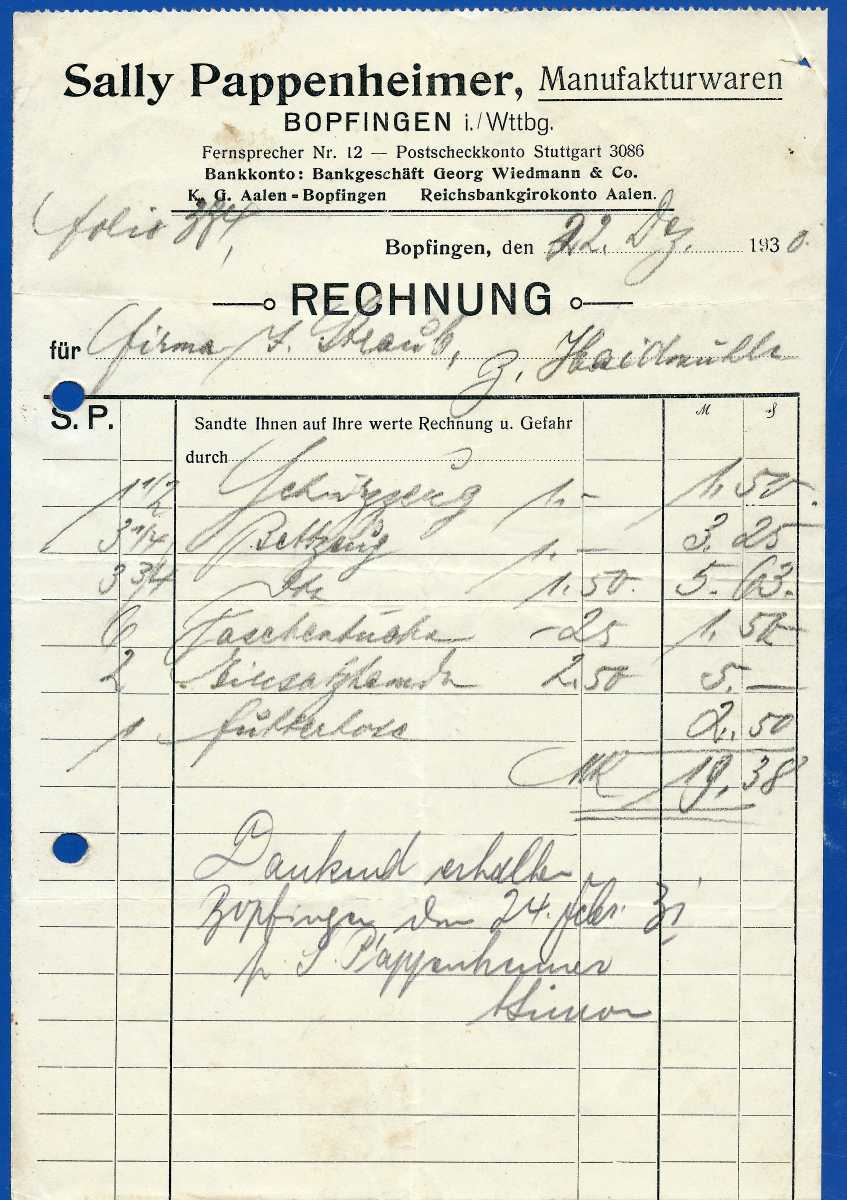 Sally Pappenheimer, Manufakturwaren
BOPFINGEN i./Wttbg.
Fernsprecher Nr. 12 — Postscheckkonto Stuttgart 3086
Bankkonto: Bankgeschäft Georg Wiedmann & Co.
K. G. Aalen-Bopfingen Reichsbankgirokonto Aalen.
folio 384,
Bopfingen, den 22. Dez. 1930.
RECHNUNG
für Firma Straub,
z. Haidmühle
S. P. M ₰
Sandte Ihnen auf Ihre werte Rechnung u. Gefahr
durch
1 1/2 Schürzzeug 1.- 1. 50.
3 1/4 Bettzeug 1.— 3. 25
3 3/4 Dto 1.50. 5. 63.
6 Taschentücher -25 1. 50
2 Einsatzhemden 2.50 5.—
1 Futterhose 2. 50
MK 19. 38
Dankend erhalten
Bopfingen, den 24. Febr. 31
p. S. Pappenheimer